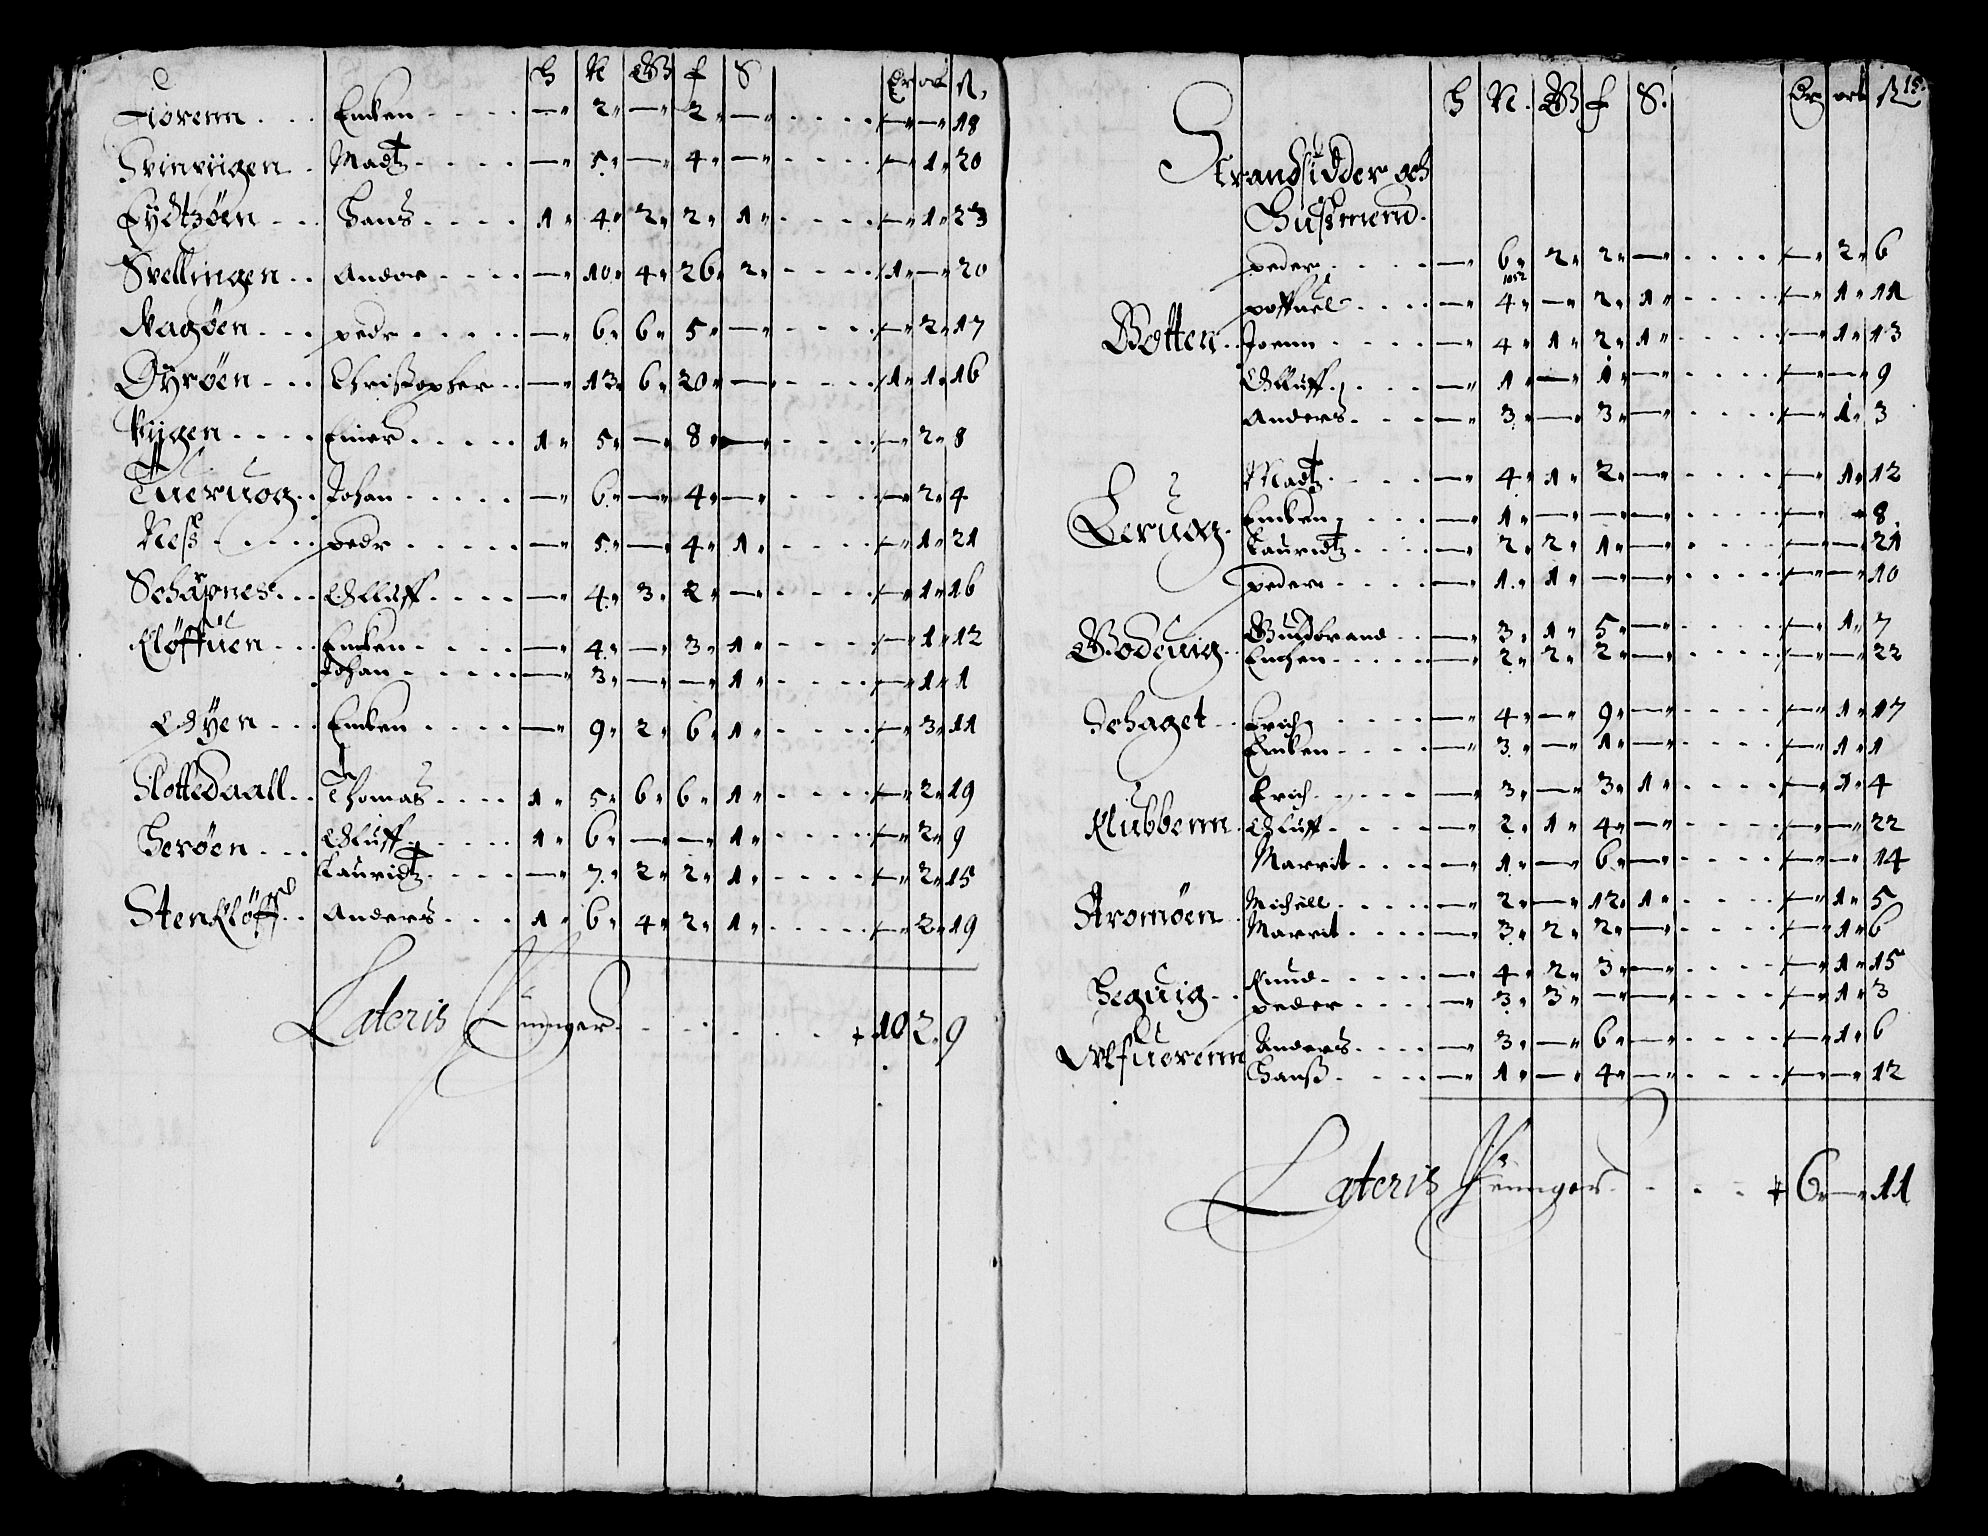 H N G f S Dr ort ß
Fiørenn Encken — 2 — 2 — — — 18
Svinviigen Madtz — 5 — 4 — — 1 20
Eydtzøen Hans 1 4 2 2 1 — 1 23
Svellingen Andor — 10 4 26 2 1 — 20
Vagøen pedr — 6 6 5 — — 2 17
Dyrøen Christopher — 13 6 20 — 1 1 16
Viigen Einerd 1 5 — 8 — — 2 8
Tueruog Johan — 6 — 4 — — 2 4
Ness pedr — 5 — 4 1 — 1 21
Schapnes Olluff — 4 3 2 — — 1 16
Kløffuen Encken — 4 — 3 1 — 1 12
Johan — 3 — — 1 — 1 1
Øyen Encken — 9 2 6 1 — 3 11
Slottedaall Thomas 1 5 6 6 1 — 2 19
Herøen Olluff 1 6 — — 1 — 2 9
Lauridtz — 7 2 2 1 — 2 15
Stenkløff Anders 1 6 4 2 1 — 2 19
Lateris Penninger 10 2 9
H N G f S Dr ort ß 15
Strandsidder och
Hussmend
peder — 6 2 2 — — 2 6
poffuel — 4 — 2 1 — 1 11
Botten Joenn — 4 1 2 1 — 1 13
Olluff — 1 — 1 — — — 9
Anders — 3 — 3 — — 1 3
Madtz — 4 1 2 — — 1 12
Leruog Encken — 1 — — — — 8
Lauridtz — 2 2 1 — — — 21
peder — 1 1 — — — — 10
Bodeuig Gudbrand — 3 1 5 — — 1 7
Encken — 2 2 2 — — — 22
Schaget Erich — 4 — 9 — — 1 17
Encken — 3 — 1 — — 1 1
Erich — 3 — 3 1 — 1 4
Klubbenn Olluff — 2 1 4 — — — 22
Marrit — 1 — 6 — — — 14
Stromøen Michell — 2 — 12 1 — 1 5
Marrit — 3 2 2 — — 1 6
Knud — 4 2 3 — — 1 15
Heguig peder — 3 3 — — — 1 3
Anders — 3 — 6 — — 1 6
Hanss — 1 — 4 — — — 12
Lateris Penninger 6 — 11